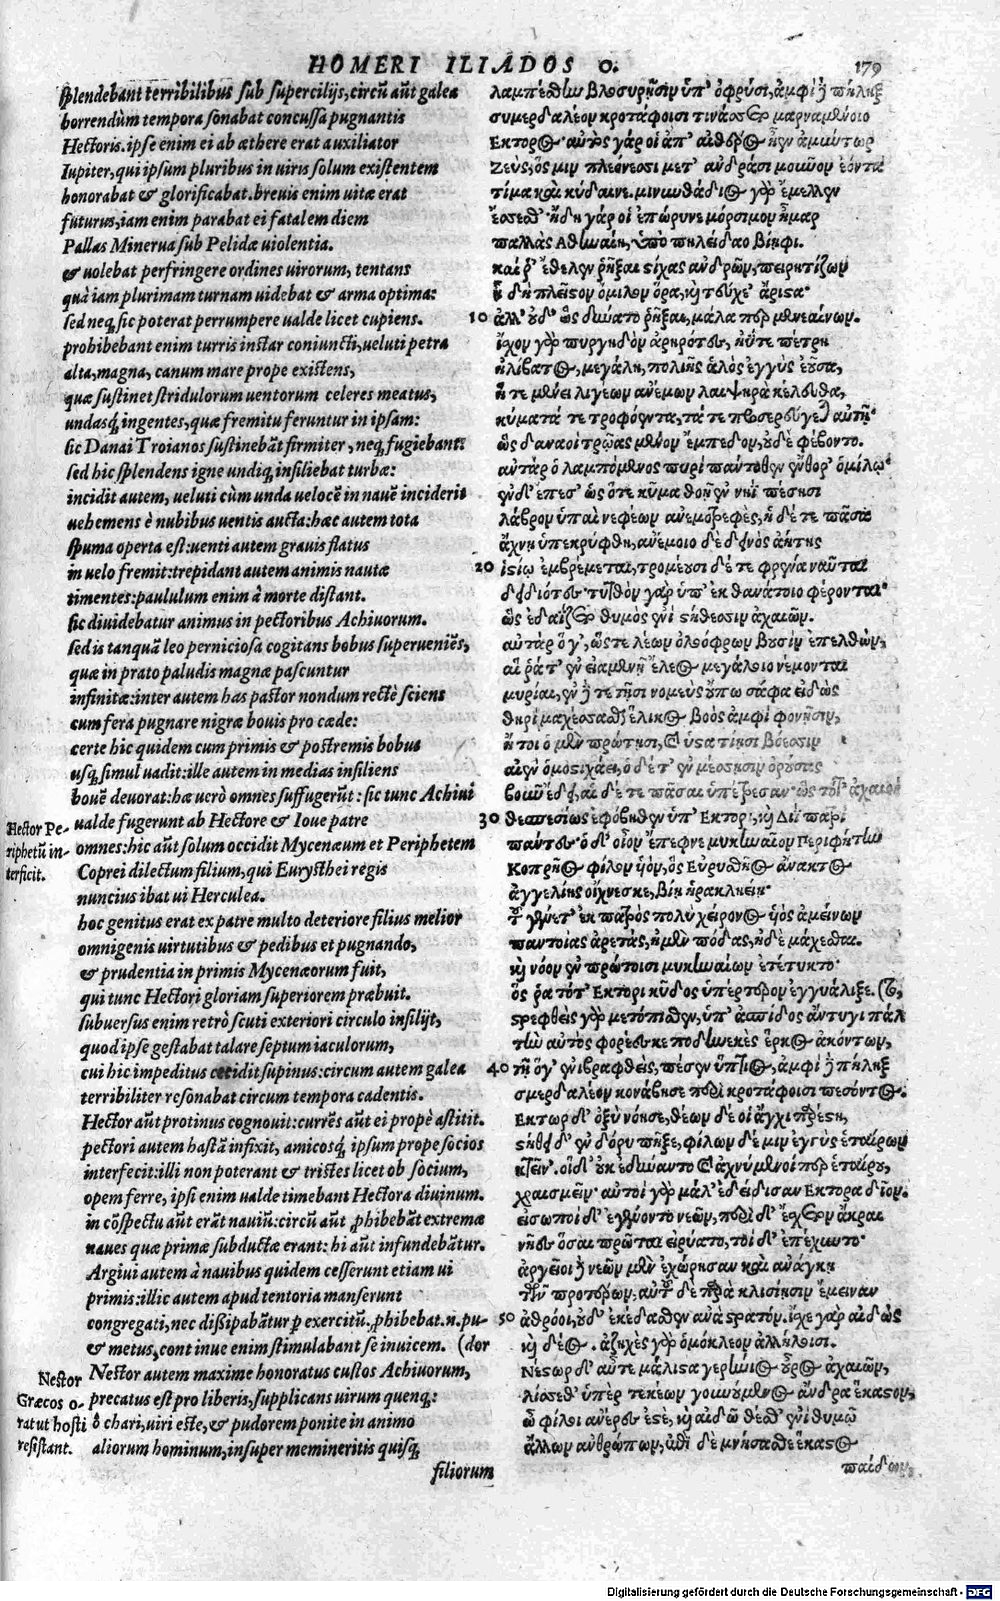 HOMERI ILIADOS O.
179
splendebant terribilibus sub supercilijs, circũ aũt galea
horrendùm tempora sonabat concussa pugnantis
Hectoris. ipse enim ei ab æthere erat auxiliator
Iupiter, qui ipsum pluribus in uiris solum existentem
honorabat & glorificabat. breuis enim uitæ erat
futurus, iam enim parabat ei fatalem diem
Pallas Minerua sub Pelidæ uiolentia.
& uolebat perfringere ordines uirorum, tentans
quà iam plurimam turnam uidebat & arma optima:
sed neq; sic poterat perrumpere ualde licet cupiens.
prohibebant enim turris instar coniuncti, ueluti petra
alta, magna, canum mare prope existens,
quæ sustinet stridulorum uentorum celeres meatus,
undasq; ingentes, quæ fremitu feruntur in ipsam:
sic Danai Troianos sustinebãt firmiter, neq; fugiebant:
sed hic splendens igne undiq; insiliebat turbæ:
incidit autem, ueluti cùm unda uelocẽ in nauẽ inciderit
uehemens è nubibus uentis aucta: hæc autem tota
spuma operta est: uenti autem grauis flatus
in uelo fremit: trepidant autem animis nautæ
timentes: paululum enim à morte distant.
sic diuidebatur animus in pectoribus Achiuorum.
sed is tanquã leo perniciosa cogitans bobus superueniẽs,
quæ in prato paludis magnæ pascuntur
infinitæ: inter autem has pastor nondum rectè sciens
cum fera pugnare nigræ bouis pro cæde:
certe hic quidem cum primis & postremis bobus
usq; simul uadit: ille autem in medias insiliens
bouẽ deuorat: hæ uerò omnes suffugerũt: sic tunc Achiui
ualde fugerunt ab Hectore & Ioue patre
omnes: hic aũt solum occidit Mycenæum et Periphetem
Coprei dilectum filium, qui Eurysthei regis
nuncius ibat ui Herculea.
hoc genitus erat ex patre multo deteriore filius melior
omnigenis uirtutibus & pedibus et pugnando,
& prudentia in primis Mycenæorum fuit,
qui tunc Hectori gloriam superiorem præbuit.
subuersus enim retrò scuti exteriori circulo insilijt,
quod ipse gestabat talare septum iaculorum,
cui hic impeditus cecidit supinus: circum autem galea
terribiliter resonabat circum tempora cadentis.
Hector aũt protinus cognouit: currẽs aũt ei propè astitit.
pectori autem hastã infixit, amicosq; ipsum prope socios
interfecit: illi non poterant & tristes licet ob socium,
opem ferre, ipsi enim ualde timebant Hectora diuinum.
in cõspectu aũt erãt nauiũ: circũ aũt ꝓhibebãt extremæ
naues quæ primæ subductæ erant: hi aũt infundebãtur.
Argiui autem à nauibus quidem cesserunt etiam ui
primis: illic autem apud tentoria manserunt
congregati, nec dissipabãtur p exercitũ. ꝓhibebat.n.pu-
& metus, continue enim stimulabant se inuicem. (dor
Nestor autem maxime honoratus custos Achiuorum,
precatus est pro liberis, supplicans uirum quenq;:
ô chari, uiri este, & pudorem ponite in animo
aliorum hominum, insuper memineritis quisq;
filiorum
Hector Pe-
riphetũ in-
terficit.
Nestor
Græcos o-
rat ut hosti
resistant.
λαμπέσθην βλοσυρῇσιν ὑπ' ὀφρύσι, ἀμφὶ ἢ πήληξ
σμερδαλέον κροτάφοισι τινάσσετο μαρναμένοιο
Εκτορος· αὐτὸς γάρ οἱ ἀπ' αἰθέρος ἦεν ἀμύντωρ
Ζεὺς, ὅς μιν πλεόνεσσι μετ' ἀνδράσι μοῦνον ἐόντα
τίμα καὶ κύδαινε. μινυνθάδιος γὰρ ἔμελλεν
ἔσεσθ'· ἤδη γάρ οἱ ἐπώρνυε μόρσιμον ἦμαρ
παλλὰς Αθηναίη, ὑπὸ πηλείδαο βίηφι.
καί ῥ' ἔθελεν ῥῆξαι στίχας ἀνδρῶν, πειρητίζων
ᾗ δὴ πλεῖστον ὅμιλον ὅρα, καὶ τεύχε' ἄριστα·
10 ἀλλ' οὐδ' ὣς δύνατο ῥῆξαι, μάλα περ μενεαίνων.
ἴσχον γὰρ πυργηδὸν ἀρηρότες, ἠΰτε πέτρη
ἠλίβατος, μεγάλη, πολιῆς ἁλὸς ἐγγὺς ἐοῦσα,
ἥ τε μένει λιγέων ἀνέμων λαιψηρὰ κέλευθα,
κύματά τε τροφόεντα, τά τε προσερεύγεται αὐτήν·
ὣς δαναοὶ τρῶας μένον ἔμπεδον, οὐδὲ φέβοντο.
αὐτὰρ ὁ λαμπόμενος πυρὶ πάντοθεν ἔνθορ' ὁμίλῳ·
ἐν δ' ἔπεσ' ὡς ὅτε κῦμα θοῇ ἐν νηῒ πέσησι
λάβρον ὑπαὶ νεφέων ἀνεμοτρεφὲς, ἡ δέ τε πᾶσα
ἄχνῃ ὑπεκρύφθη, ἀνέμοιο δὲ δεινὸς ἀήτης
20 ἱστίῳ ἐμβρέμεται, τρομέουσι δέ τε φρένα ναῦται
δειδιότες· τυτθὸν γὰρ ὑπ' ἐκ θανάτοιο φέρονται·
ὣς ἐδαΐζετο θυμὸς ἐνὶ στήθεσσιν ἀχαιῶν.
αὐτὰρ ὅ γ', ὥς τε λέων ὀλοόφρων βουσὶν ἐπελθὼν,
αἵ ῥά τ' ἐν εἱαμενῇ ἕλεος μεγάλοιο νέμονται
μυρίαι, ἐν δέ τε τῇσι νομεὺς οὔπω σάφα εἰδὼς
θηρὶ μαχέσασθαι ἕλικος βοὸς ἀμφὶ φονῇσιν,
ἤτοι ὁ μὲν πρώτησι, καὶ ὑστατίησι βόεσσιν
αἰὲν ὁμοστιχάει, ὁ δέ τ' ἐν μέσσησιν ὀρούσας
βοῦν ἔδει, αἱ δέ τε πᾶσαι ὑπέτρεσαν· ὣς τότ' ἀχαιοὶ
30 θεσπεσίως ἐφόβηθεν ὑφ' Εκτορι, καὶ Διῒ πατρὶ
πάντες· ὁ δ' οἶον ἔπεφνε μυκηναῖον Περιφήτην
Κοπρῆος φίλον υἱὸν, ὃς Εὐρυσθῆος ἄνακτος
ἀγγελίης οἴχνεσκε, βίῃ ἡρακληείῃ·
τοῦ γένετ' ἐκ πατρὸς πολὺ χείρονος υἱὸς ἀμείνων
παντοίας ἀρετὰς, ἠμὲν πόδας, ἠδὲ μάχεσθαι.
καὶ νόον ἐν πρώτοισι μυκηναίων ἐτέτυκτο·
ὅς ῥα τότ' Εκτορι κῦδος ὑπέρτερον ἐγγυάλιξε. (το,
στρεφθεὶς γὰρ μετόπισθεν, ὑπ' ἀσπίδος ἄντυγι πάλ
τὴν αὐτὸς φορέεσκε ποδηνεκὲς ἕρκος ἀκόντων,
40 τῇ ὅγ' ἐνὶ βλαφθεὶς, πέσεν ὕπτιος, ἀμφὶ ἢ πήληξ
σμερδαλέον κονάβησε περὶ κροτάφοισι πεσόντος.
Εκτωρ δ' ὀξὺ νόησε, θέων δέ οἱ ἄγχι παρέστη,
στήθει δ' ἐν δόρυ πῆξε, φίλων δέ μιν ἐγγὺς ἑταίρων
κτεῖν'. οἱ δ' οὐκ ἐδύναντο καὶ ἀχνύμενοί περ ἑταίρου,
χραισμεῖν· αὐτοὶ γὰρ μάλ' ἐδείδισαν Εκτορα δῖον.
εἰσωποὶ δ' ἐγένοντο νεῶν, περὶ δ' ἔσχεθον ἄκραι
νῆες ὅσαι πρῶται εἰρύατο, τοὶ δ' ἐπέχυντο·
ἀργεῖοι ἢ νεῶν μὲν ἐχώρησαν καὶ ἀνάγκῃ
τῶν προτέρων, αὐτοῦ δὲ παρὰ κλισίησιν ἔμειναν
50 ἀθρόοι, οὐδ' ἐκέδασθεν ἀνὰ στρατόν. ἴσχε γὰρ αἰδὼς
καὶ δέος. ἀζηχὲς γὰρ ὁμόκλεον ἀλλήλοισι.
Νέστωρ δ' αὖτε μάλιστα γερήνιος οὖρος ἀχαιῶν,
λίσσεθ' ὑπὲρ τεκέων γουνούμενος ἄνδρα ἕκαστον,
ὦ φίλοι ἀνέρες ἐστὲ, καὶ αἰδῶ θέσθ' ἐνὶ θυμῷ
ἄλλων ἀνθρώπων, ἐπὶ δὲ μνήσασθε ἕκαστος
παίδων,
Digitalisierung gefördert durch die Deutsche Forschungsgemeinschaft - DFG